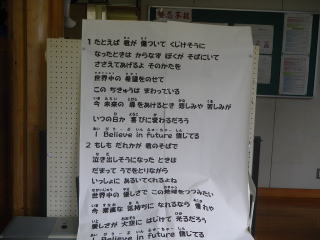 1 たとえば 君が 傷ついて くじけそうに
なったときは かならず ぼくが そばにいて
ささえてあげるよ そのかたを
世界中の 希望をのせて
この ちきゅうは まわっている
今 未来の 扉をあけるとき 悲しみや 苦しみが
いつの日か 喜びに変わるだろう
I Believe in future 信じてる
2 もしも だれかが 君のそばで
泣き出しそうになった ときは
だまって うでをとりながら
いっしょに あるいてくれるよね
世界中の 優しさで この地球をつつみたい
今 素直な 気持ちに なれるなら 憧れや
愛しさが 大空に はじけて 光るだろう
I Believe in future 信じてる